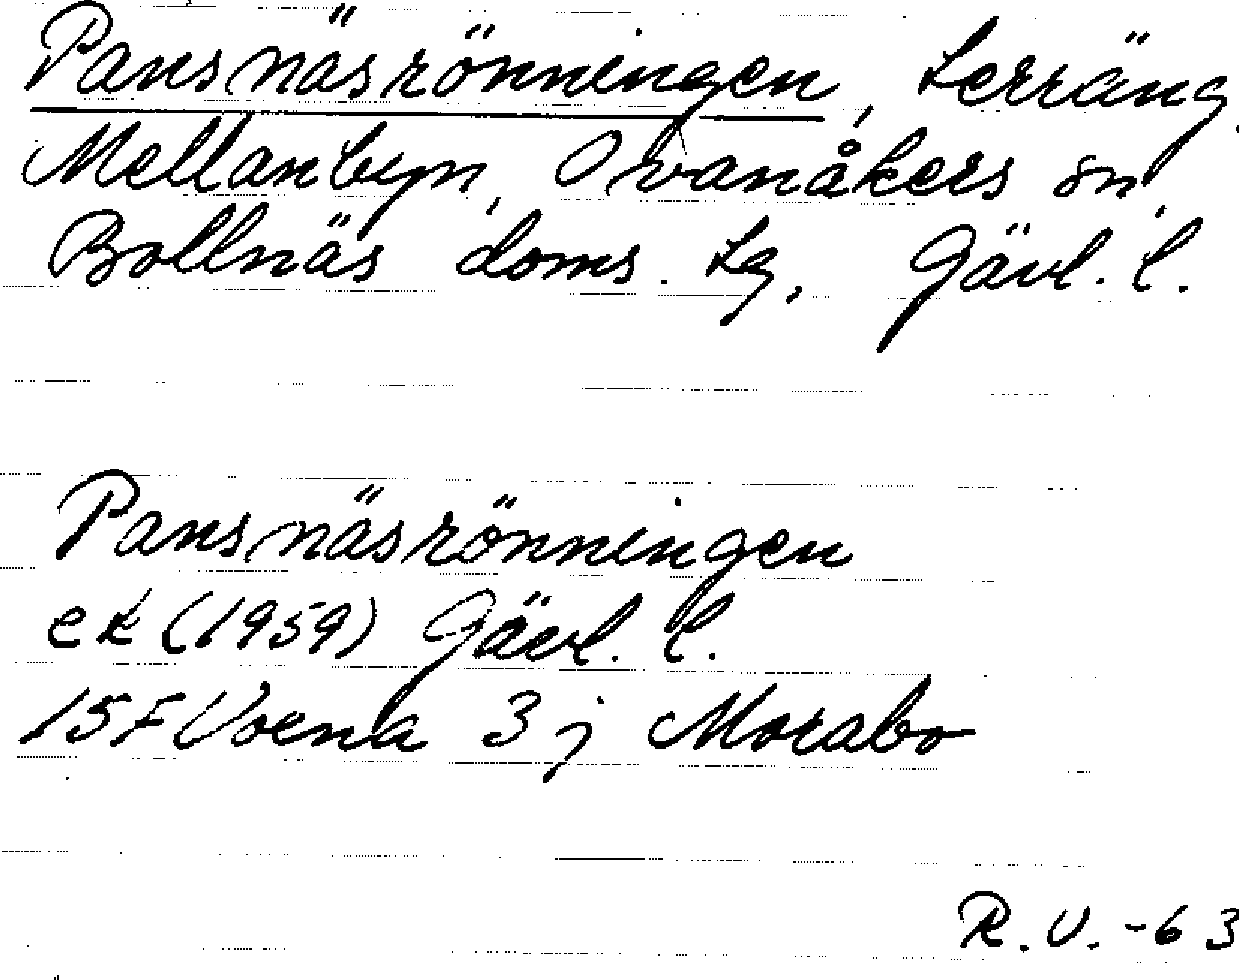 Pansnäsrönningen, terräng
Mellanbyn, Ovanåkers sn,
Bollnäs doms. tg, Gävl. l.
Pansnäsrönningen
ek (1959) Gävl. l.
15F Voxna 3 j Morabo
R.V. -63